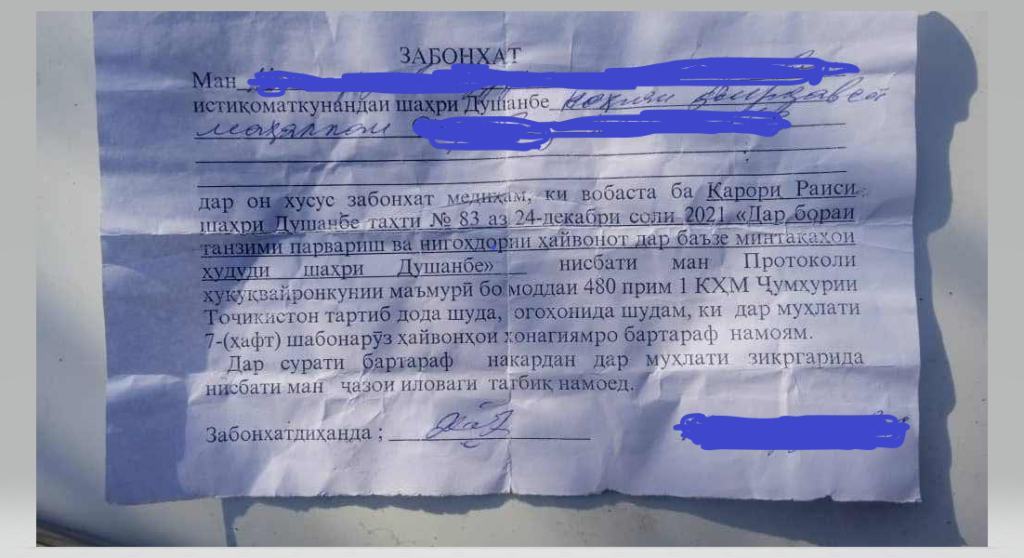 ЗАБОНХАТ
Ман
истиқоматкунандаи шаҳри Душанбе ноҳияи Фирдавсӣ
маҳаллаи
дар он хусус забонхат медиҳам, ки вобаста ба Қарори Раиси
шаҳри Душанбе таҳти № 83 аз 24-декабри соли 2021 «Дар бораи
танзими парвариш ва нигоҳдории ҳайвонот дар баъзе минтақаҳои
ҳудуди шаҳри Душанбе» нисбати ман Протоколи
ҳуқуқвайронкунии маъмурӣ бо моддаи 480 прим 1 КҲМ Ҷумҳурии
Тоҷикистон тартиб дода шуда, огоҳонида шудам, ки дар муҳлати
7-(ҳафт) шабонарӯз ҳайвонҳои хонагиямро бартараф намоям.
Дар сурати бартараф накардан дар муҳлати зикргарида
нисбати ман ҷазои иловаги татбиқ намоед.
Забонхатдиҳанда ;